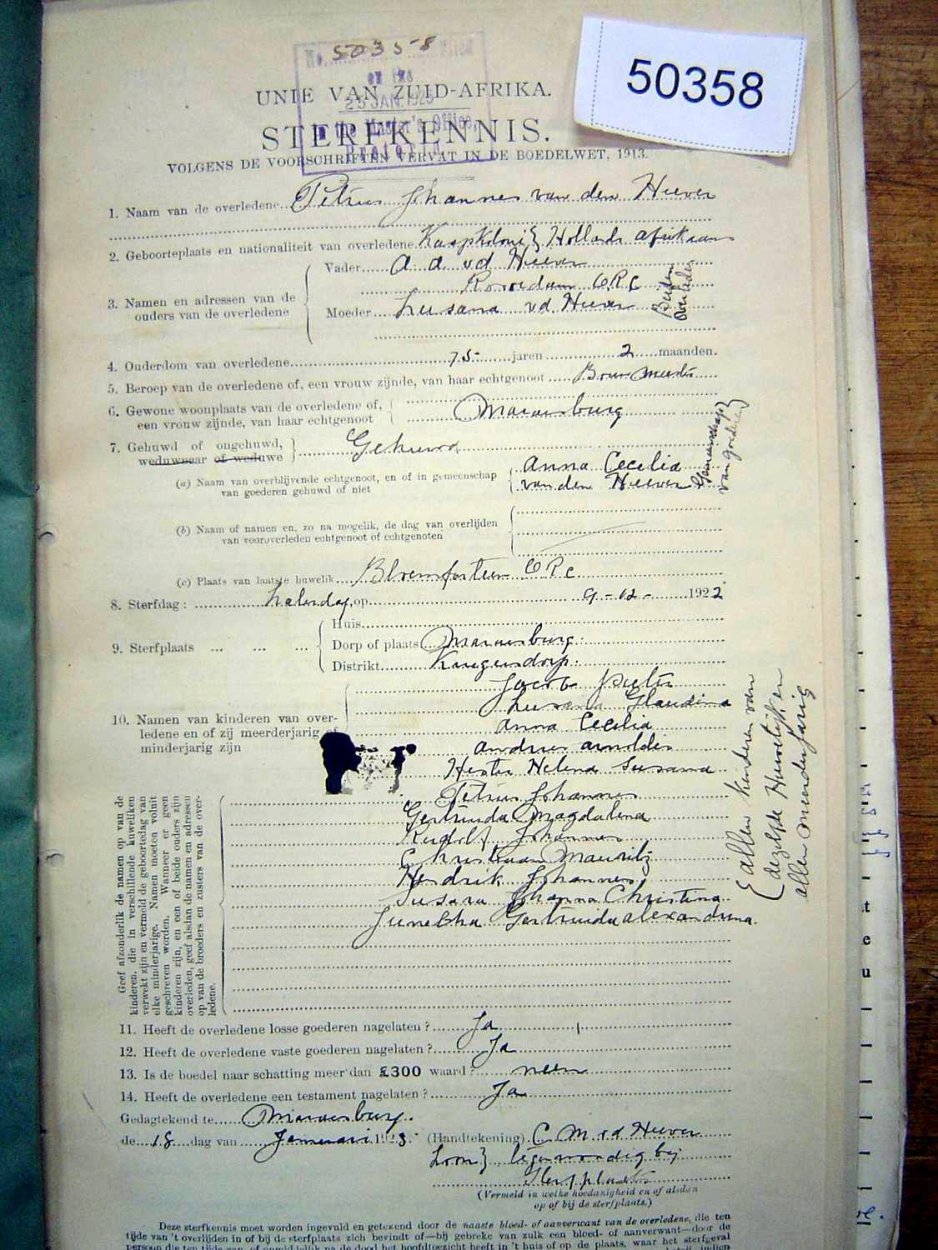 50358
No. 50358 Filed
on the
25 JAN. 1923
in the Master's Office,
Pretoria
UNIE VAN ZUID-AFRIKA.
STERFKENNIS.
VOLGENS DE VOORSCHRIFTEN VERVAT IN DE BOEDELWET, 1913.
1. Naam van de overledene Petrus Johannes van den Heever
2. Geboorteplaats en nationaliteit van overledene Kaapkolonie} Hollands afrikaans
3. Namen en adressen van de ouders van de overledene
Vader A A vd Heever
Rouxdam O R C
Moeder Susana vd Heever
Beiden Overleden
4. Ouderdom van overledene 75 jaren 2 maanden.
5. Beroep van de overledene of, een vrouw zijnde, van haar echtgenoot Bouwmeester
6. Gewone woonplaats van de overledene of, een vrouw zijnde, van haar echtgenoot Maraisburg
7. Gehuwd of ongehuwd, weduwnaar of weduwe Gehuwd
(a) Naam van overblijvende echtgenoot, en of in gemeenschap van goederen gehuwd of niet
Anna Cecelia
van den Heever
Gemeenschap van goederen}
(b) Naam of namen en, zo na mogelik, de dag van overlijden van vooroverleden echtgenoot of echtgenoten
(c) Plaats van laatste huwelik Bloemfontein O R C
8. Sterfdag: Zaterdag op 9-12- 1922
9. Sterfplaats
Huis
Dorp of plaats Maraisburg
Distrikt Krugersdorp
10. Namen van kinderen van overledene en of zij meerderjarig of minderjarig zijn
Jacob Pieter
Susana Glaudina
Anna Cecilia
Andries Arnoldus
Hester Helena Susanna
Petrus Johannes
Gertruida Magdalena
Rudolf Johannes
Christiaan Mauritz
Hendrik Johannes
Susara Johanna Christina
Gertruida Alexandrina
{allen kinderen van
dezelfde Huwelijk en
allen meerderjarig
Geef afzonderlik de namen op van de kinderen, die in verschillende huweliken verwekt zijn en vermeld de geboortedag van elke minderjarige. Namen moeten voluit geschreven worden. Wanneer er geen kinderen zijn, en een of beide ouders zijn overleden, geef alsdan de namen en adressen op van de broeders en zusters van de overledene.
11. Heeft de overledene losse goederen nagelaten? Ja
12. Heeft de overledene vaste goederen nagelaten? Ja
13. Is de boedel naar schatting meer dan £300 waard? neen
14. Heeft de overledene een testament nagelaten? Ja
Gedagtekend te Maraisburg
de 18 dag van Januari 1923 (Handtekening) C M vd Heever
Zoon} tegenwoordig bij
Sterfplaats
(Vermeld in welke hoedanigheid en of alsdan op of bij de sterfplaats.)
Deze sterfkennis moet worden ingevuld en getekend door de naaste bloed- of aanverwant van de overledene, die ten
tijde van 't overlijden in of bij de sterfplaats zich bevindt of—bij gebreke van zulk een bloed- of aanverwant—door de